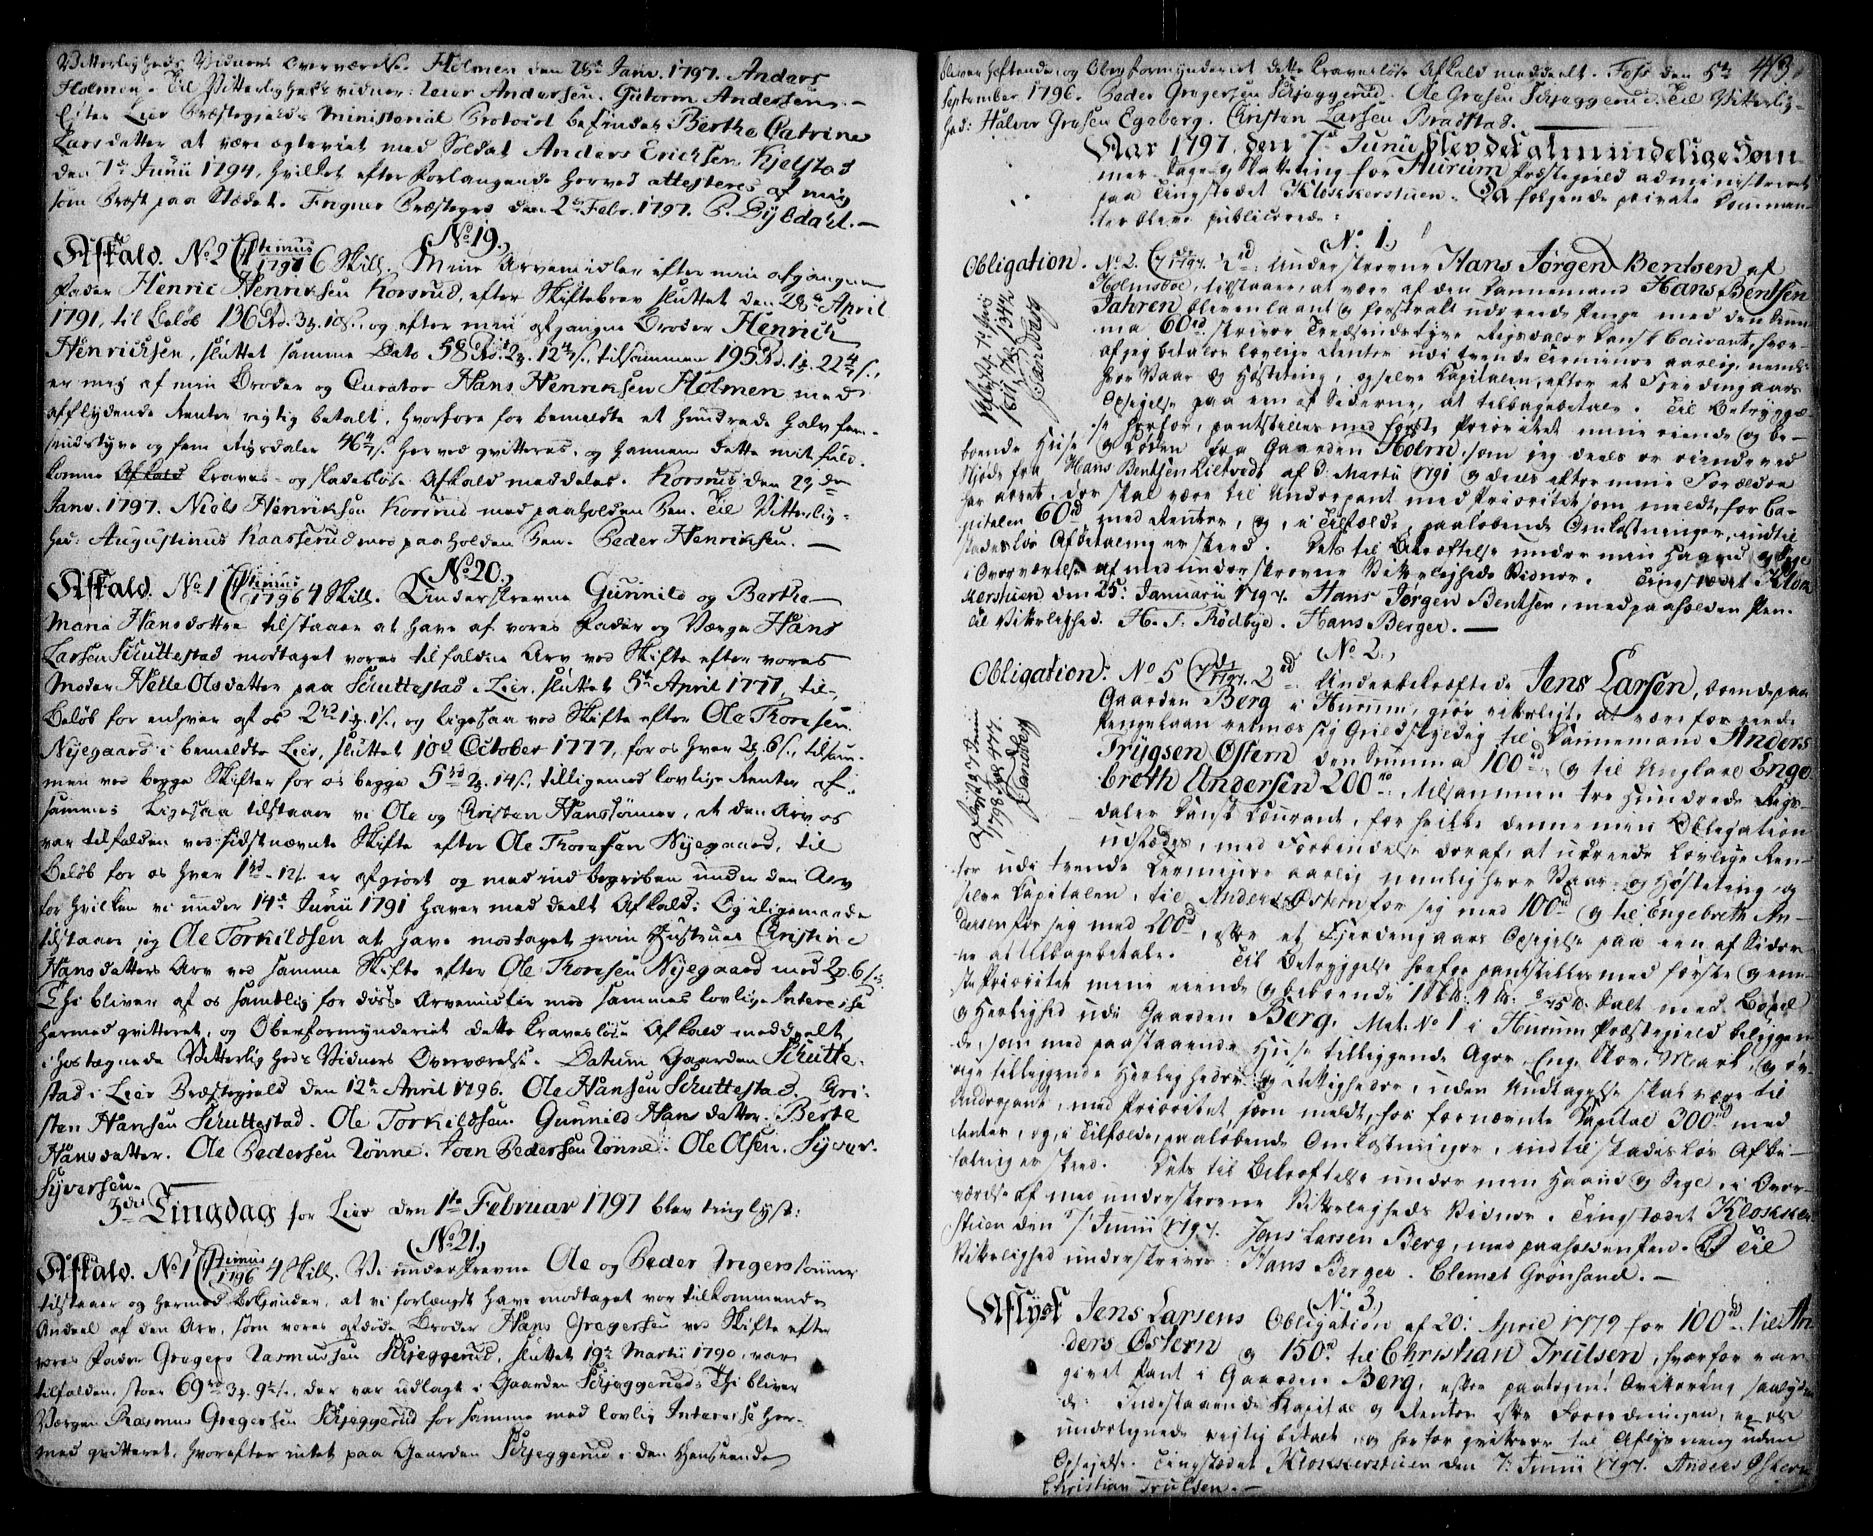 Vitterligheds Vidners Overværelse. Holmen den 28de Janv. 1797. Anders
Holmen. Til Vitterligheds vidner: Iver Andersen. Gutorm Andersen. —
Efter Lier Præstegjelds Ministerial Protocol befindes Berthe Catrine
Larsdatter at være ægteviet med Soldat Anders Erichsen Kjelstad
den 7de Junii 1794, hvilket efter Forlangende herved attesteres af mig
som Præst paa Stædet. Præstegrd den 2de Febr. 1797. —
No 19.
Afkald. No 2 1796 6 Skill. Mine Arvemidler efter min afgangne
Fader Henric Henriksen Korsrud, efter Skiftebrev sluttet den 28de April
1791, til Beløb 136 Rd. og efter min afgangne Broder Henrich
Henrichsen, sluttet samme Dato 58 Rd. tilsammen 195 Rd.
er mig af min Broder og Curator Hans Henriksen Holmen med
afflydende Renter rigtig betalt. Hvorfore for bemeldte et hundrede halv fem-
sindstyve og fem Rigsdaler herved qvitteres, og hannem dette mit fuld-
komne Afkald kraves- og skadesløse Afkald meddeles. Korsrud den 29de
Janv. 1797. Niels Henriksen Korsrud med paaholden Pen. Til Vitterlig-
hed: Augustinus Kaasserud med paaholden Pen. Peder Henriksen. —
No 20.
Afkald. No 1 1796 4 Skill. Underskrevne Gunnild og Berthe
Maria Hansdøttre tilstaaer at have af vores Fader og Værge Hans
Larsen Schuttestad modtaget vores tilfaldne Arv ved Skifte efter vores
Moder Nelle Olsdatter paa Schuttestad i Lier, sluttet 5te April 1771, til-
Beløb for enhver af os og ligesaa ved Skifte efter Ole Thoresen
Nyegaard i bemeldte Lier, sluttet 10de October 1777, for os hver tilsam-
men ved begge Skifter for os begge tilligemed lovlige Renter af
sammes. Ligesaa tilstaaer vi Ole og Christen Hanssønner, at den Arv os
var tilfalden ved sidstnævnte Skifte efter Ole Thoresen Nyegaard, til
Beløb for os hver er afgjort og med indbegreben under den Arv
for hvilken vi under 14de Junii 1791 haver meddeelt Afkald: Og iligemaade
tilstaaer jeg Ole Torkildsen at have modtaget min Hustrues Christine
Hansdatters Arv ved samme Skifte efter Ole Thoresen Nyegaard med
Thi bliver af os samtlig for disse Arvemidler med sammes lovlige Interesse
hermed qvitteret, og Oberformynderiet dette kravesløse Afkald meddeelt
i hostegnede Vitterligheds Vidners Overværelse. Datum Gaarden Schutte-
stad i Lier Præstegield den 12te April 1796. Ole Hansen Schuttestad. Chri-
sten Hansen Schuttestad. Ole Torkildsen. Gunnild Hansdatter. Berte
Hansdatter. Ole Pedersen Tønne. Joen Pedersen Tønne. Ole Olsen. Syver
Syversen.
3die Tingdag for Lier den 1te Februar 1797 blev tinglyst:
No 21.
Afkald. No 1 1796 4 Skill. Vi underskrevne Ole og Peder Gregerssønner
tilstaaer og hermed bekiender, at vi forlængst have modtaget vor tilkommende
Andeel af den Arv, som vores afdøde Broder Hans Gregersen ved Skifte efter
vores Fader Gregers Rasmussen Schjeggerud, sluttet 19de Martii 1790, var
tilfalden, stoer 69 der var udlagt i Gaarden Schjeggerud: Thi bliver
Værgen Rasmus Gregersen Schjeggerud for samme med lovlig Interesse her-
med qvitteret, hvorefter intet paa Gaarden Schjeggerud i den Henseende
bliver heftende, og Overformynderiet dette kravesløse Afkald meddeelt. Foss den 5te 473.
September 1796. Peder Gregersen Schjeggerud. Ole Gresen Schjeggerud. Til Vitterlig-
hed: Halvor Gresen Egeberg. Christen Larsen Bradstad.
Aar 1797. den 7de Junii blev det almindelige Som-
mer Sage- og Skatteting for Hurum Præstegield administreret
paa Tingstædet Klokkerstuen. Da følgende private Documen-
ter bleve publicerede:
No. 1.
Obligation. No 2. Underskrevne Hans Jørgen Bentsen af
Holmsboe, tilstaaer, at være af den Dannemand Hans Bentsen
Jahren bleven laant og forstrakt udi rede Penge med den Sum-
ma 60 rd skriver Tredsindstyve Rigsdaler Dansk Courant, hvor-
af jeg betaler lovlige Renter udi tvende Terminer aarlig, nemlig
hver Vaar og Høsteting, og selve Capitalen, efter et Fierdingaars
Opsigelse paa en af Siderne, at tilbagebetale. Til Betryggel-
se herfor, pantstilles med første Prioritet mine eiende og be-
boende Huse og Løden fra Gaarden Holm, som jeg deels er eiende ved
Skjøde fra Hans Bentsen af 3. Martii 1791 og deels efter mine Forældre
har arvet, der skal være til Underpant med Prioritet som meldt, for Ca-
pitalen 60 rd med Renter, og, i Tilfælde, paaløbende Omkostninger, indtil
skadesløs Afbetaling er skeed. Dets til Bekræftelse under min Haand og Segl
i Overværelse af med underskrevne Vitterligheds Vidner. Tingstædet Klok-
kerstuen den 25de Januarii 1797. Hans Jørgen Bentsen, med paaholden Pen.
Til Vitterlighed. H. F. Rødbye. Hans Berger. —
No 2.
Obligation: No 5 1797. 2 rd Underbekræftede Jens Larsen, boende paa
Gaarden Berg i Hurum, giør vitterligt, at være for reede
Pengelaan retmæssig Gieldskyldig til Dannemand Anders
Trygsen Østern den Summa 100 rd og til Unglare Enge-
breth Andersen 200 rd tilsammen tre hundrede Rigs-
daler Dansk Courant, for hvilke denne min Obligation
udstædes, med Forbindelse deraf, at udreede lovlige Ren-
ter udi tvende Terminer aarlig nemlig hver Vaar- og Høsteting og
selve Capitalen, til Anders Østern for sig med 100 rd og til Engebreth An-
dersen for sig med 200 rd, efter et Fjerdingaars Opsigelse paa een af Sider-
ne at tilbagebetale. Til Betryggelse herfor pantstilles med første og ene-
ste Prioritet mine eiende og beboende Salt med Bøxel
og Herlighed udi Gaarden Berg. Mat: No 1 i Hurum Præstegield beliggen-
de, som med paastaaende Huse tilliggende Ager, Eng, Skov, Mark, og øv-
rige tilliggende Herligheder og Rettigheder, uden Undtagelse skal være til
Underpant, med Prioritet som meldt, for fornævnte Capital 300 rd med
Renter, og, i Tilfælde, paaløbende Omkostninger, indtil skadesløs Afbe-
taling er skeed. Dets til Bekræftelse under min Haand og Segl, i Over-
værelse af med underskrevne Vitterligheds Vidner. Tingstædet Klokker-
stuen den 7. Junii 1797. Jens Larsen Berg, med paaholden Pen. Til
Vitterlighed underskriver: Hans Berger. Clemet Grønsand. —
No 3.
Aflyst Jens Larsens Obligation af 20. April 1779 for 100 rd. til An-
ders Østern og 150 rd til Christian Trulsen, hvorfor var
givet Pant i Gaarden Berg, efter paategnet Qvitering saalyden-
de: Indestaaende Capital og Renter efter Forordningen, er os
undertegnede rigtig betalt og herfor qviterer til Aflysning uden
Opsigelse. Tingstædet Klokkerstuen den 7. Junii 1797. Anders Østern.
Christian Trulsen. —